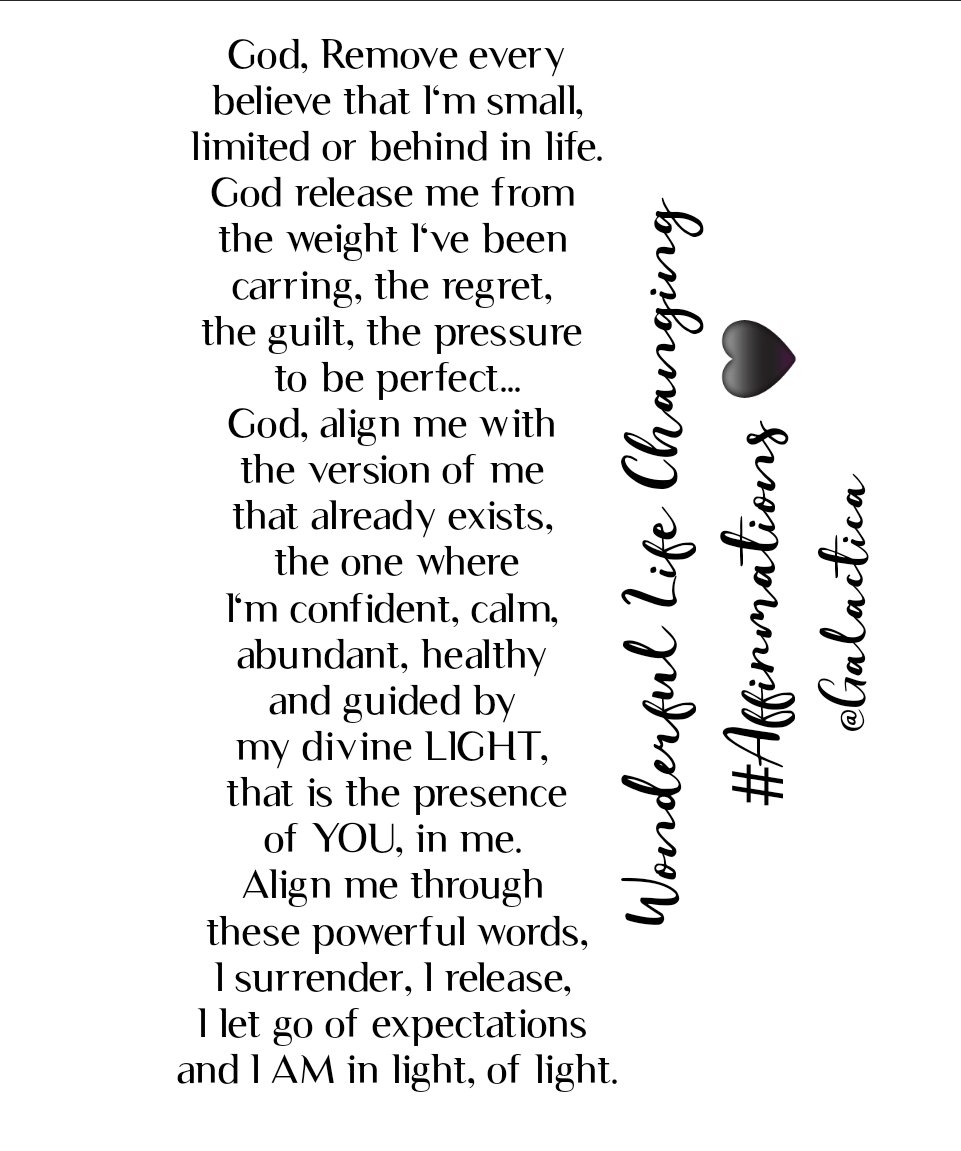 God, Remove every
believe that I‘m small,
limited or behind in life.
God release me from
the weight I‘ve been
carring, the regret,
the guilt, the pressure
to be perfect...
God, align me with
the version of me
that already exists,
the one where
I‘m confident, calm,
abundant, healthy
and guided by
my divine LIGHT,
that is the presence
of YOU, in me.
Align me through
these powerful words,
I surrender, I release,
I let go of expectations
and I AM in light, of light.
Wonderful Life Changing
#Affirmations 🖤
@Galactica